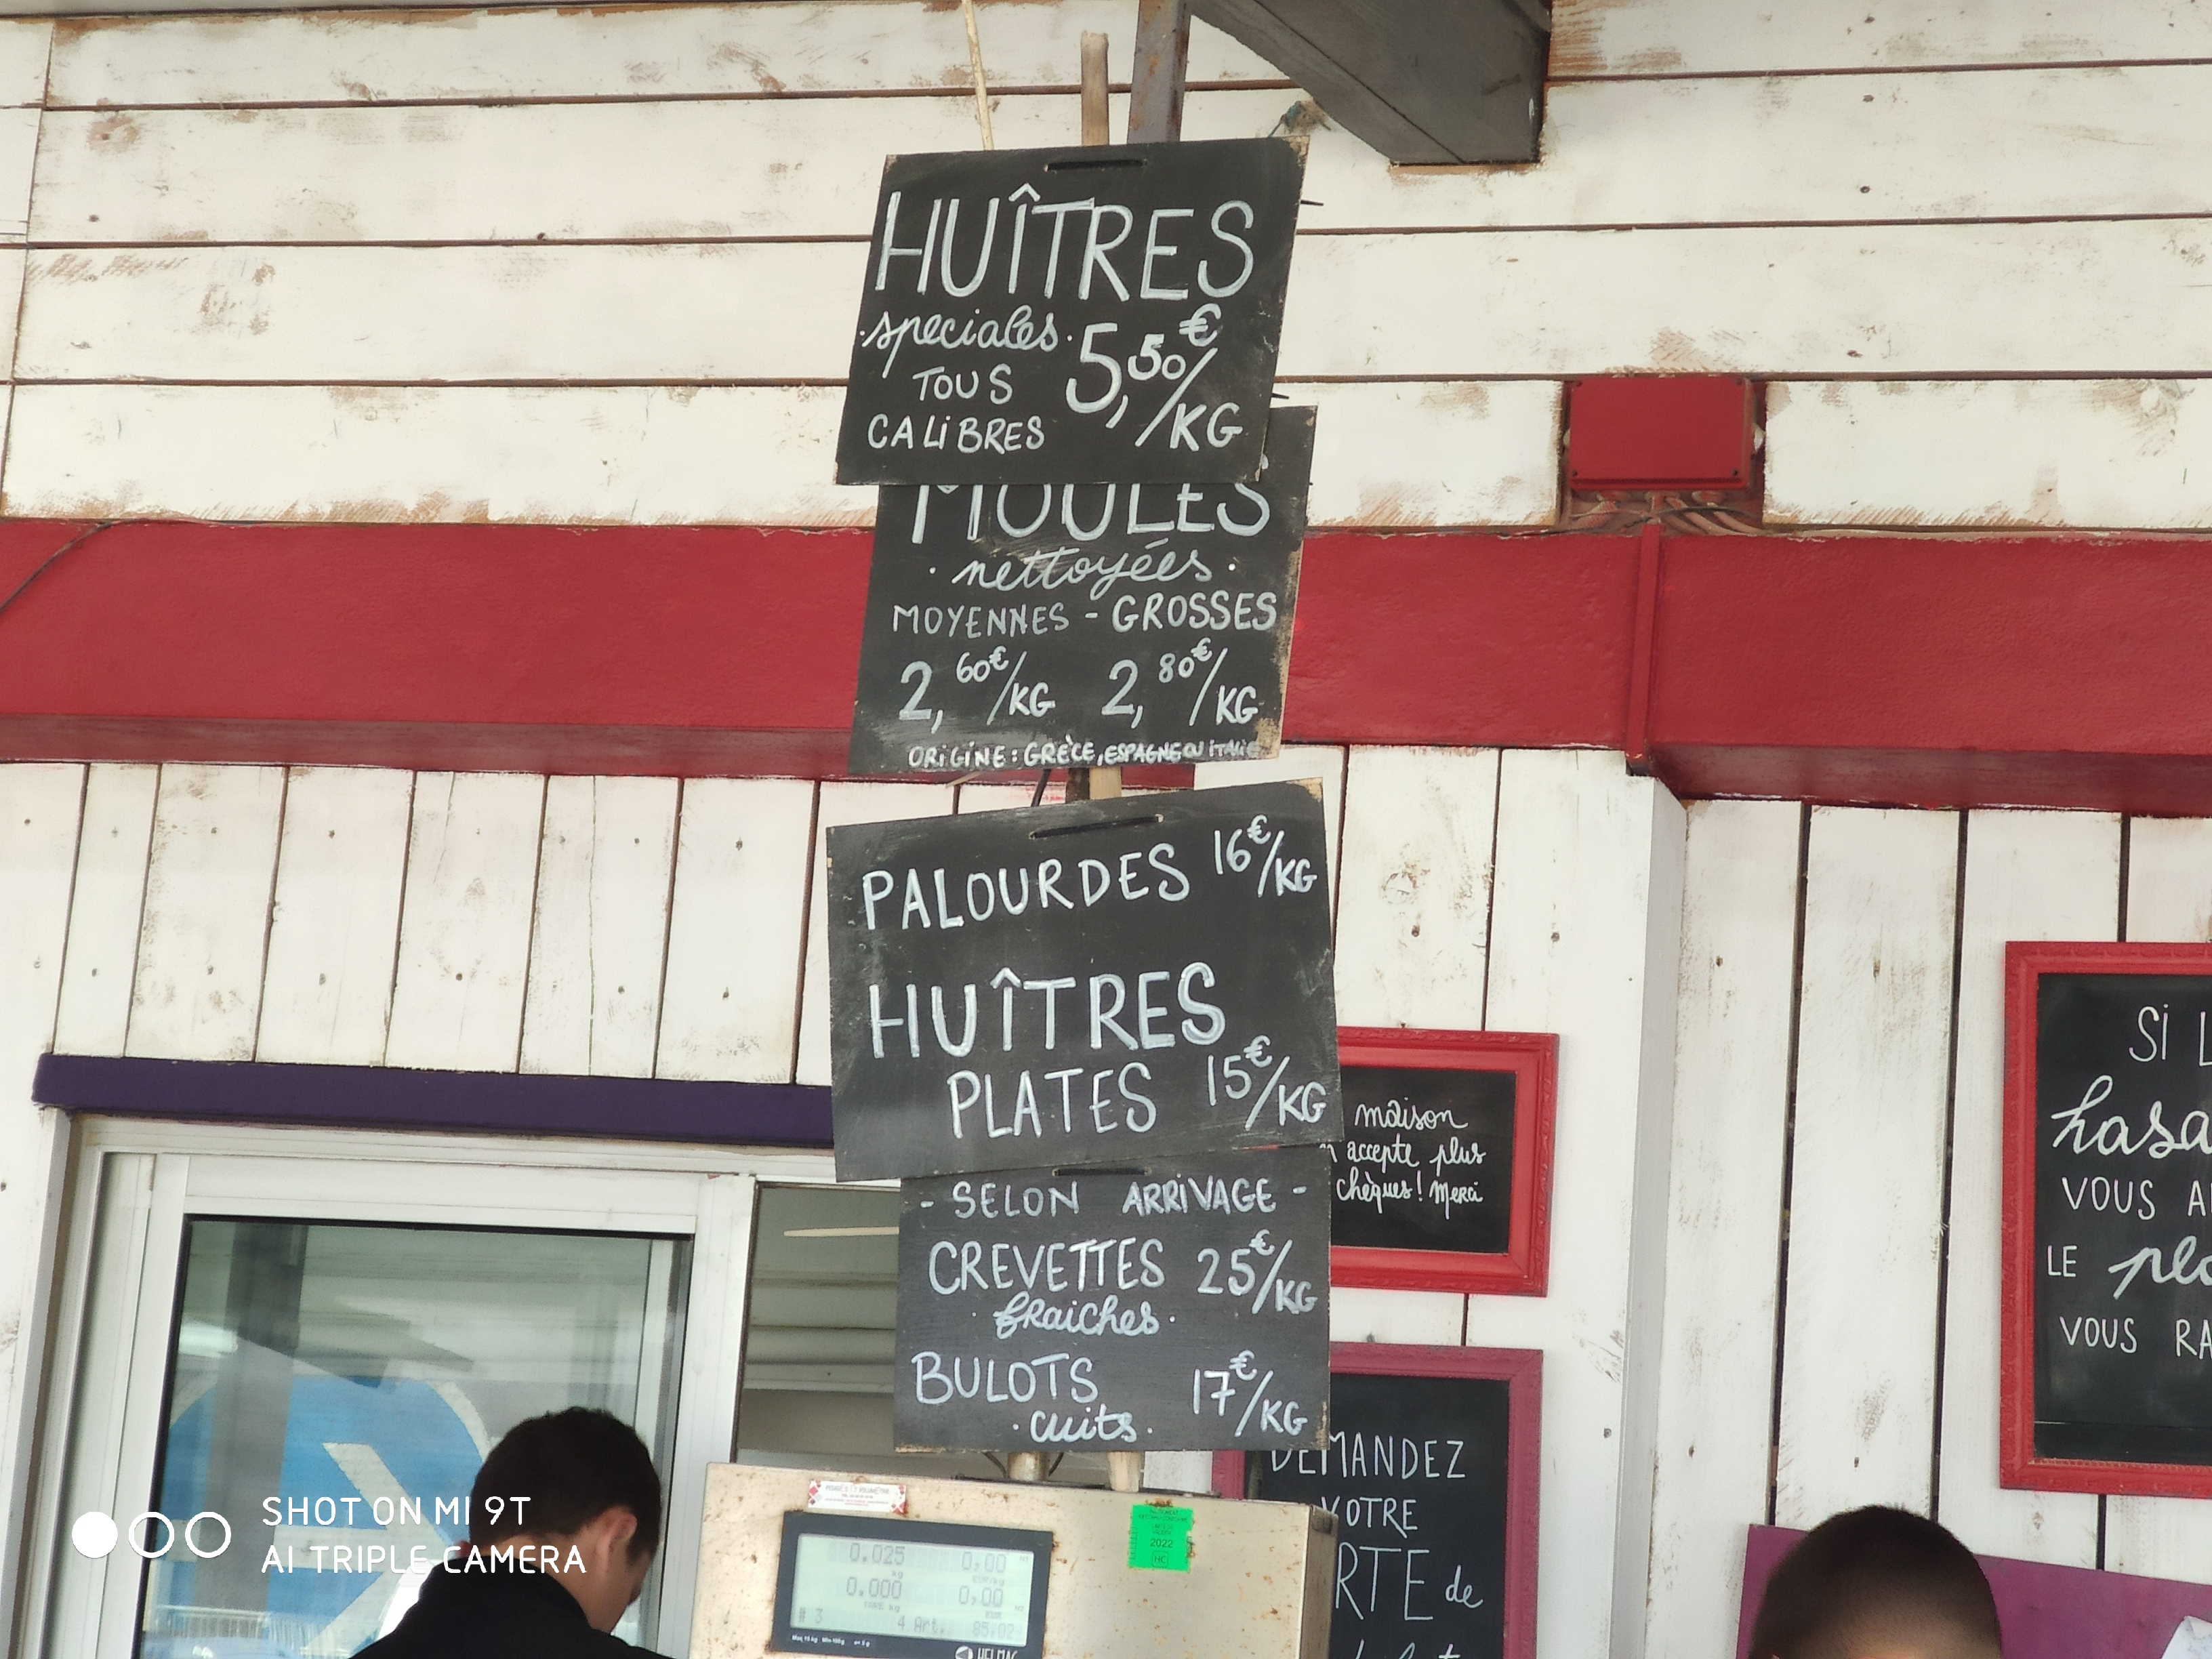 HUÎTRES
·speciales·
TOUS
CALiBRES
5,50€/KG
MOULES
· nettoyées ·
MOYENNES - GROSSES
2,60€/KG 2,80€/KG
ORIGINE : GRÈCE, ESPAGNE OU ITALIE
PALOURDES 16€/KG
HUÎTRES
PLATES 15€/KG
- SELON ARRIVAGE -
CREVETTES 25€/KG
· fraiches ·
BULOTS 17€/KG
· cuits ·
maison
accepte plus
chèques ! Merci
DEMANDEZ
VOTRE
RTE de
Si L
hasa
VOUS A
LE pla
VOUS RA
0.025 0,00
kg
0.000 0,00
# 3 4 Art. 85,02
2022
HC
SHOT ON MI 9T
AI TRIPLE CAMERA